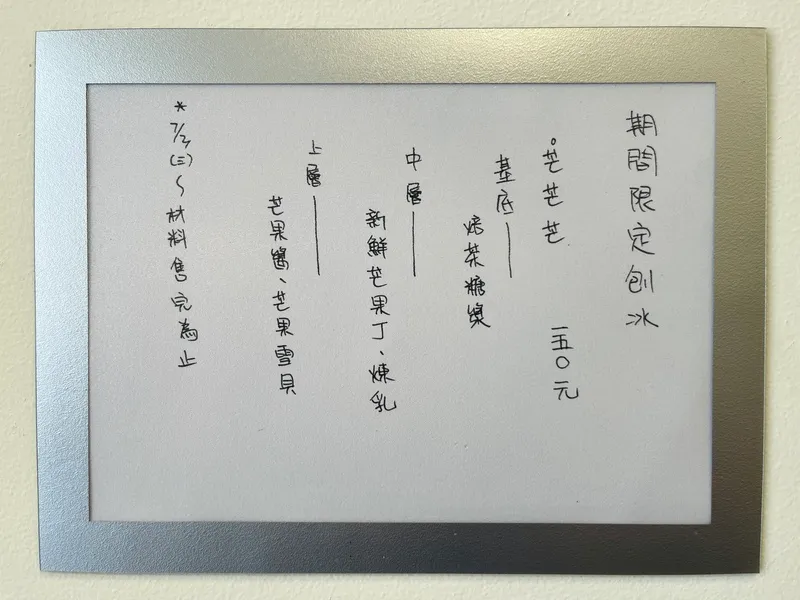 期間限定刨冰
。芒芒芒 一五〇元
基底——
焙茶糖漿
中層——
新鮮芒果丁、煉乳
上層——
芒果醬、芒果雪貝
*7/2(三)~材料售完為止